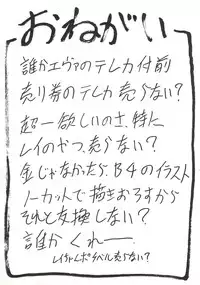 おねがい
誰かエヴァのテレカ付前
売り券のテレカ売らない?
超一欲しいのさ、特に
レイのやつ、売らない?
金じゃなかったら、B4のイラスト
ノーカットで描きおろすから
それと交換しない?
誰かくれ――
売らない?